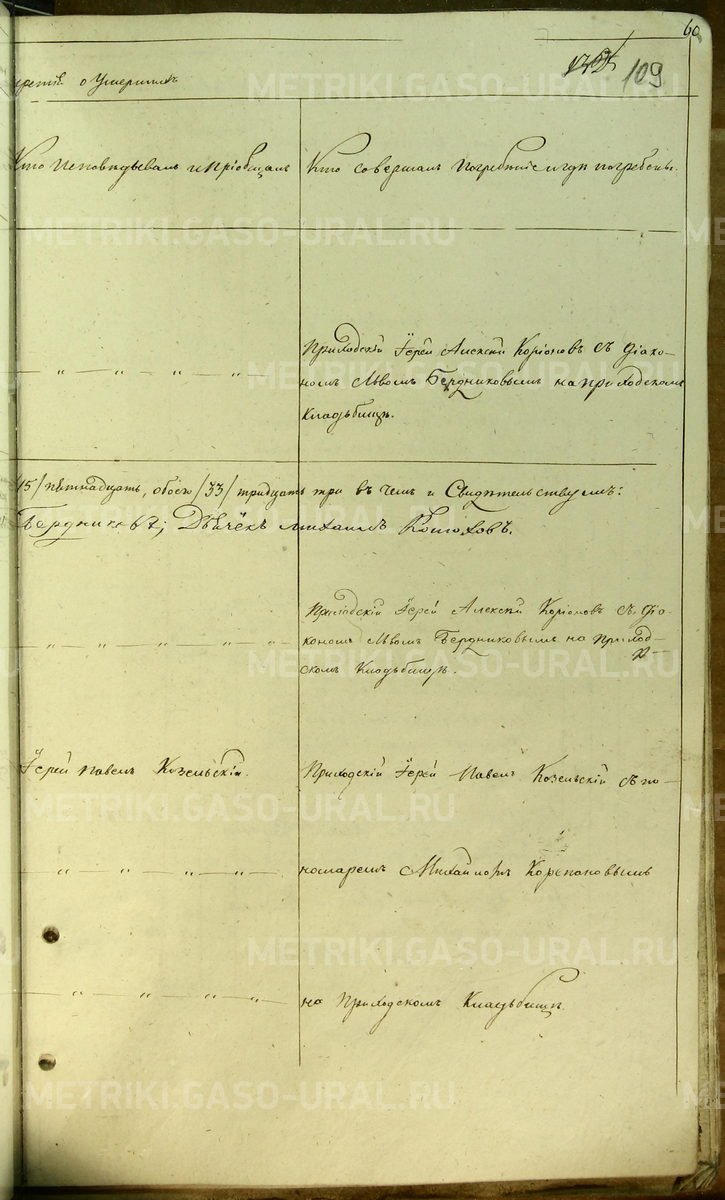 60
109
третія о Умершихъ
Кто Исповѣдывалъ и Пріобщалъ
Кто совершалъ Погребѣніе и гдѣ погребены.
Приходскій Іерей Алексѣй Коріоновъ съ Діако-
— „ — „ — „ — „ —
номъ Львомъ Бердниковымъ на приходскомъ
Кладьбищѣ.
15/ пятнадцать, обоего /33/ тридцать три въ чемъ и Свидѣтельствуемъ:
Бердниковъ; Дьячёкъ Михаилъ Конюховъ.
Приходскій Іерей Алексѣй Коріоновъ съ Діа-
— „ — „ — „ — „ —
кономъ Львомъ Бердниковымъ на Приход-
скомъ Кладьбищѣ.
Іерей Павелъ Козельскій.
Приходскій Іерей Павелъ Козельскій съ по-
— „ — „ — „ — „ —
номаремъ Михаиломъ Корепановымъ
— „ — „ — „ — „ —
на Приходскомъ Кладьбищѣ.
METRIKI.GASO-URAL.RU